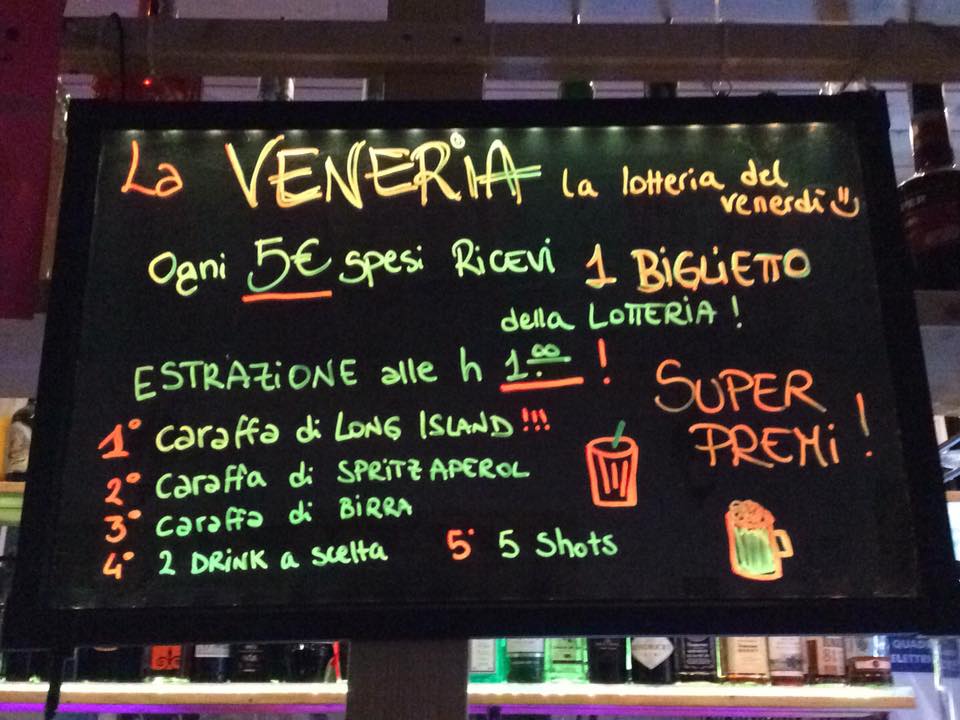 La VENERiA la lotteria del
venerdì
Ogni 5€ spesi RICEVI 1 BIGLIETTO
della LOTTERiA !
ESTRAZiONE alle h 1.00 !
SUPER
PREMi !
1° caraffa di LONG ISLAND !!!
2° caraffa di SPRITZ APEROL
3° caraffa di BIRRA
4° 2 DRINK a scelta 5° 5 Shots